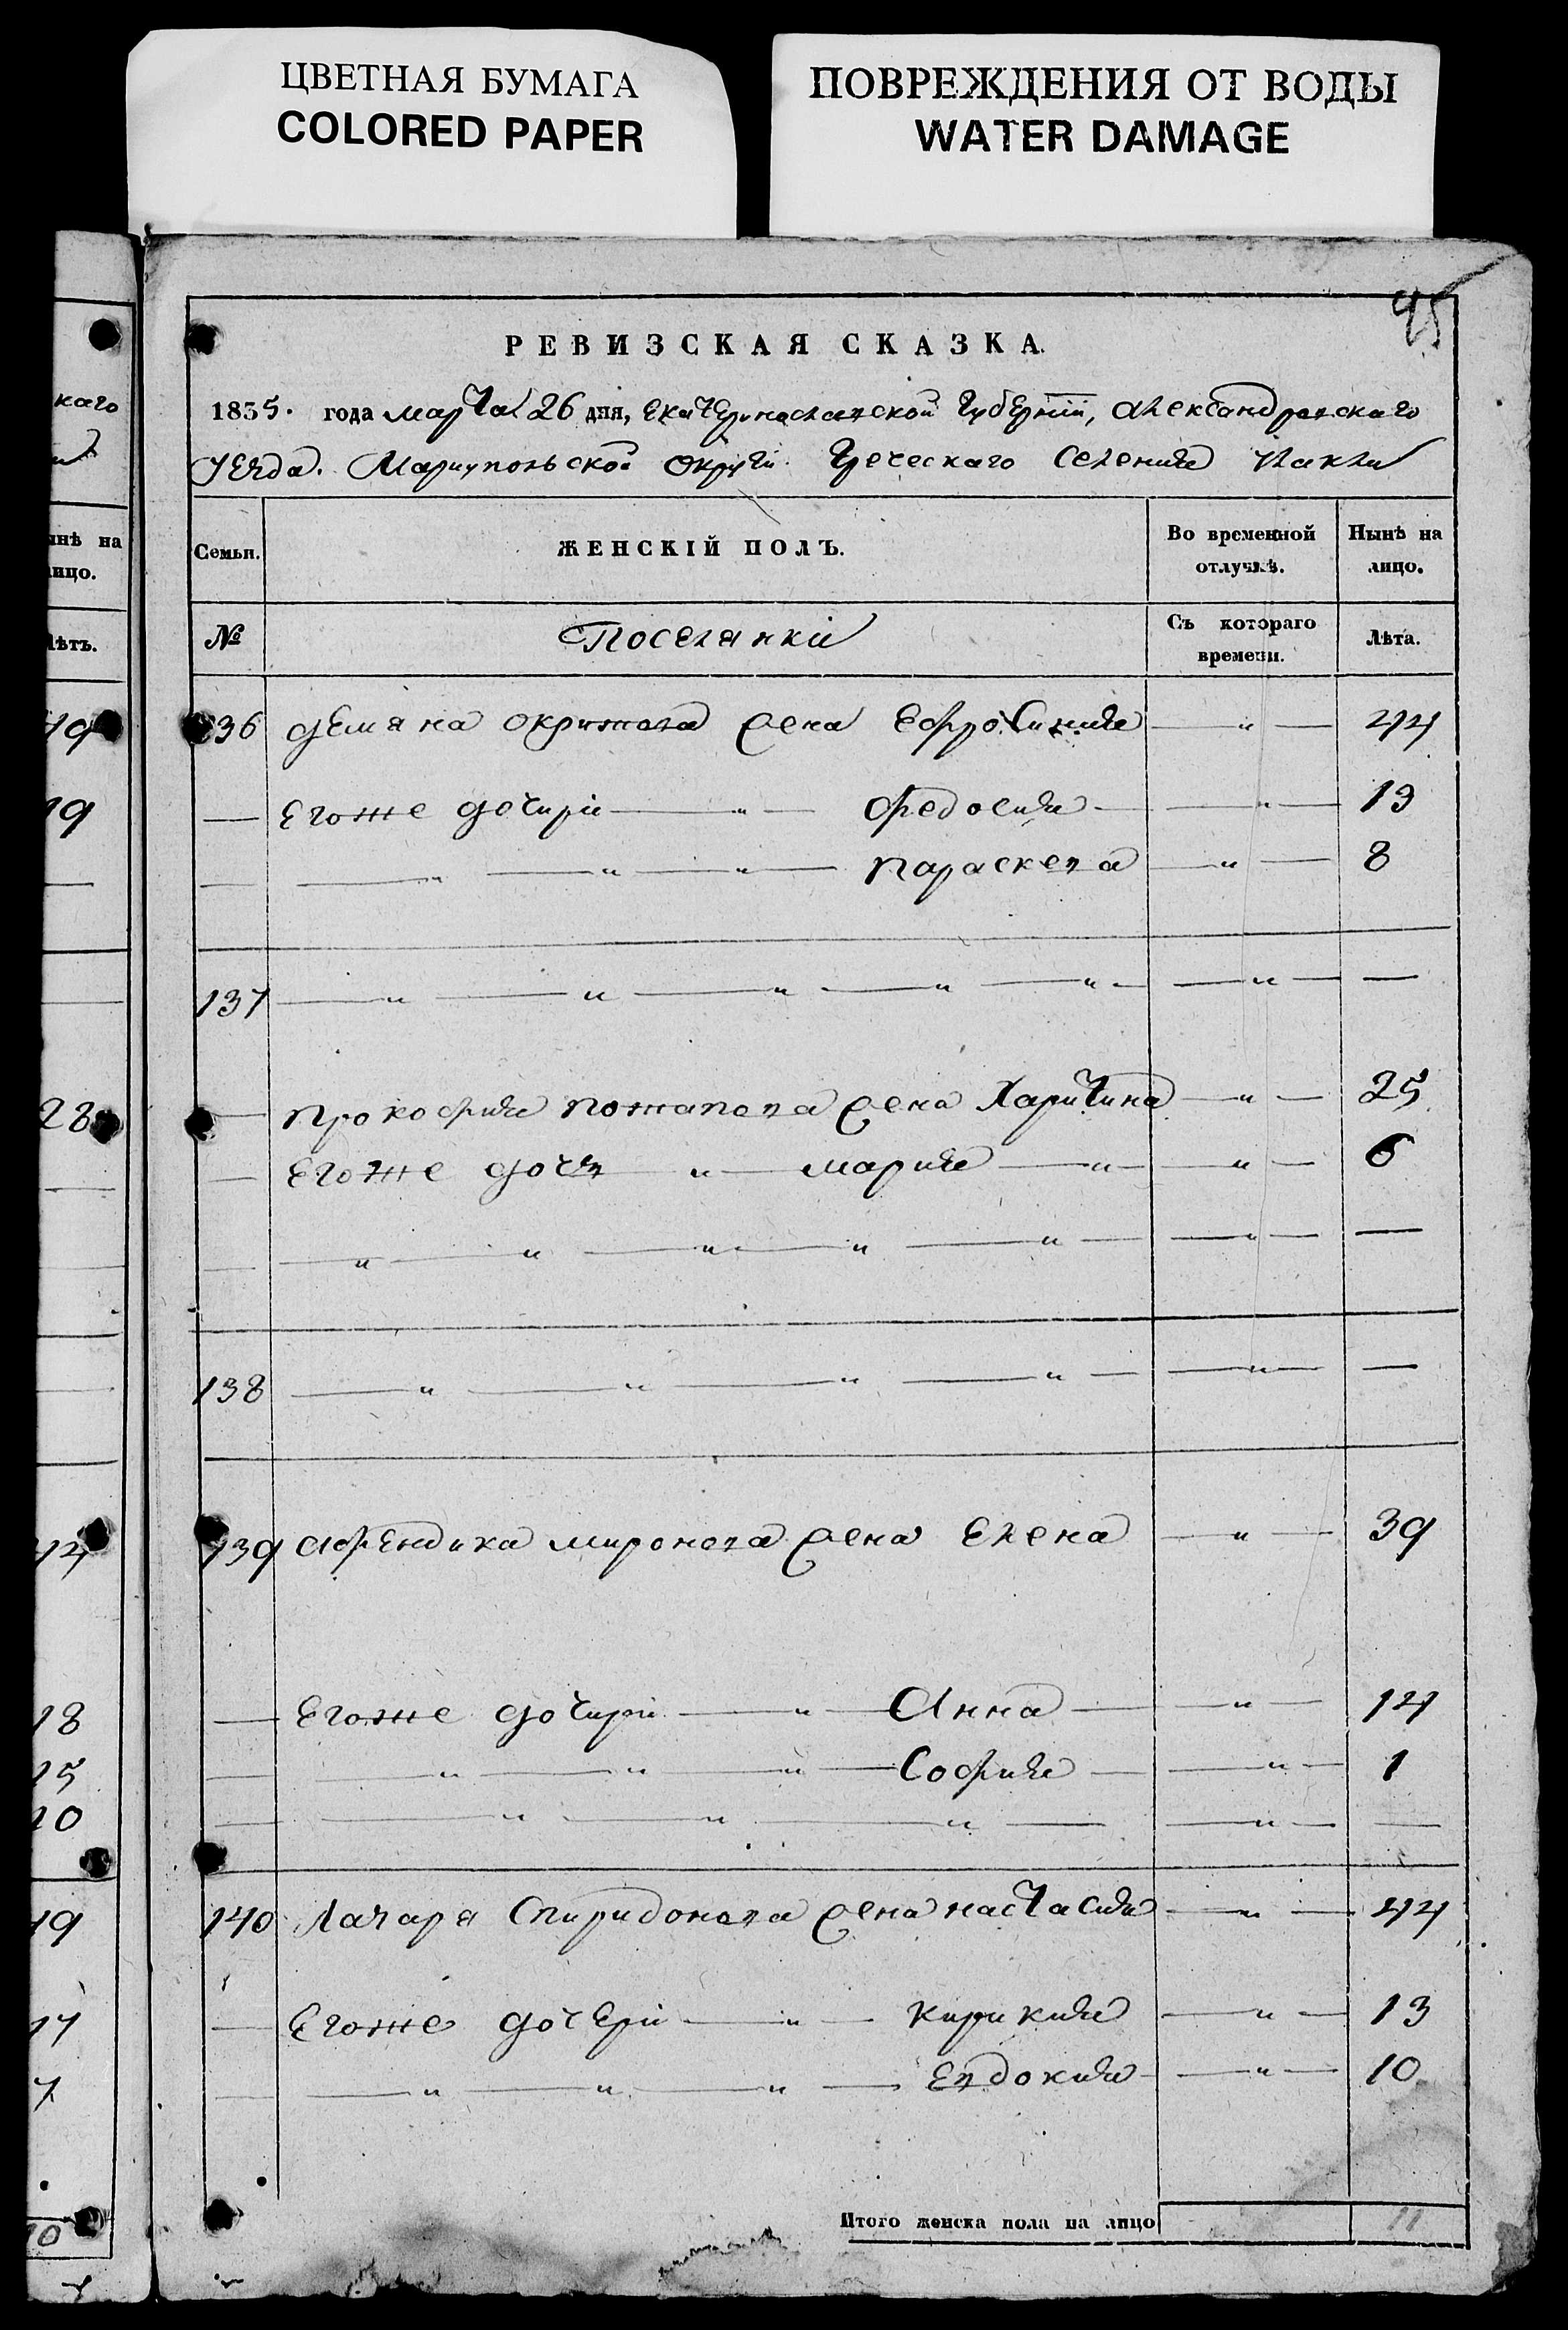 ЦВЕТНАЯ БУМАГА
COLORED PAPER
ПОВРЕЖДЕНИЯ ОТ ВОДЫ
WATER DAMAGE
95
РЕВИЗСКАЯ СКАЗКА.
1835. года марта 26 дня, Екатеринославской Губернии, Александровскаго
уезда. Мариупольской округи Греческаго Селения
Семьи. ЖЕНСКІЙ ПОЛЪ. Во временной отлучкѣ. Нынѣ на лицо.
№ Поселянки Съ котораго времени. Лѣта.
136 Демяна жена Ефросиния — " — 44
— Егоже дочири — " — Федосия — — " — 13
— — " — " — " — Параскева — " — 8
137 — " — " — " — " — " — — " — —
— Прокофия Потапова жена Харитина — " — 25
— Егоже дочь " — Мария — " — — " — 6
— — " — " — " — " — " — — " — —
138 — " — " — " — " — — " — —
139 Афендика Миронова жена Елена — " — 39
— Егоже дочири — " — Анна — — " — 14
— — " — " — " — София — — " — 1
— — " — " — " — — " — —
140 Лазаря Спиридонова жена Настасия — " — 44
— Егоже дочери — " — Кирикия — " — 13
— — " — " — " — Евдокия — — " — 10
Итого женска пола на лицо 11
каго
нынѣ на
лицо.
лѣтъ.
19
19
28
14
18
15
10
19
17
7
10